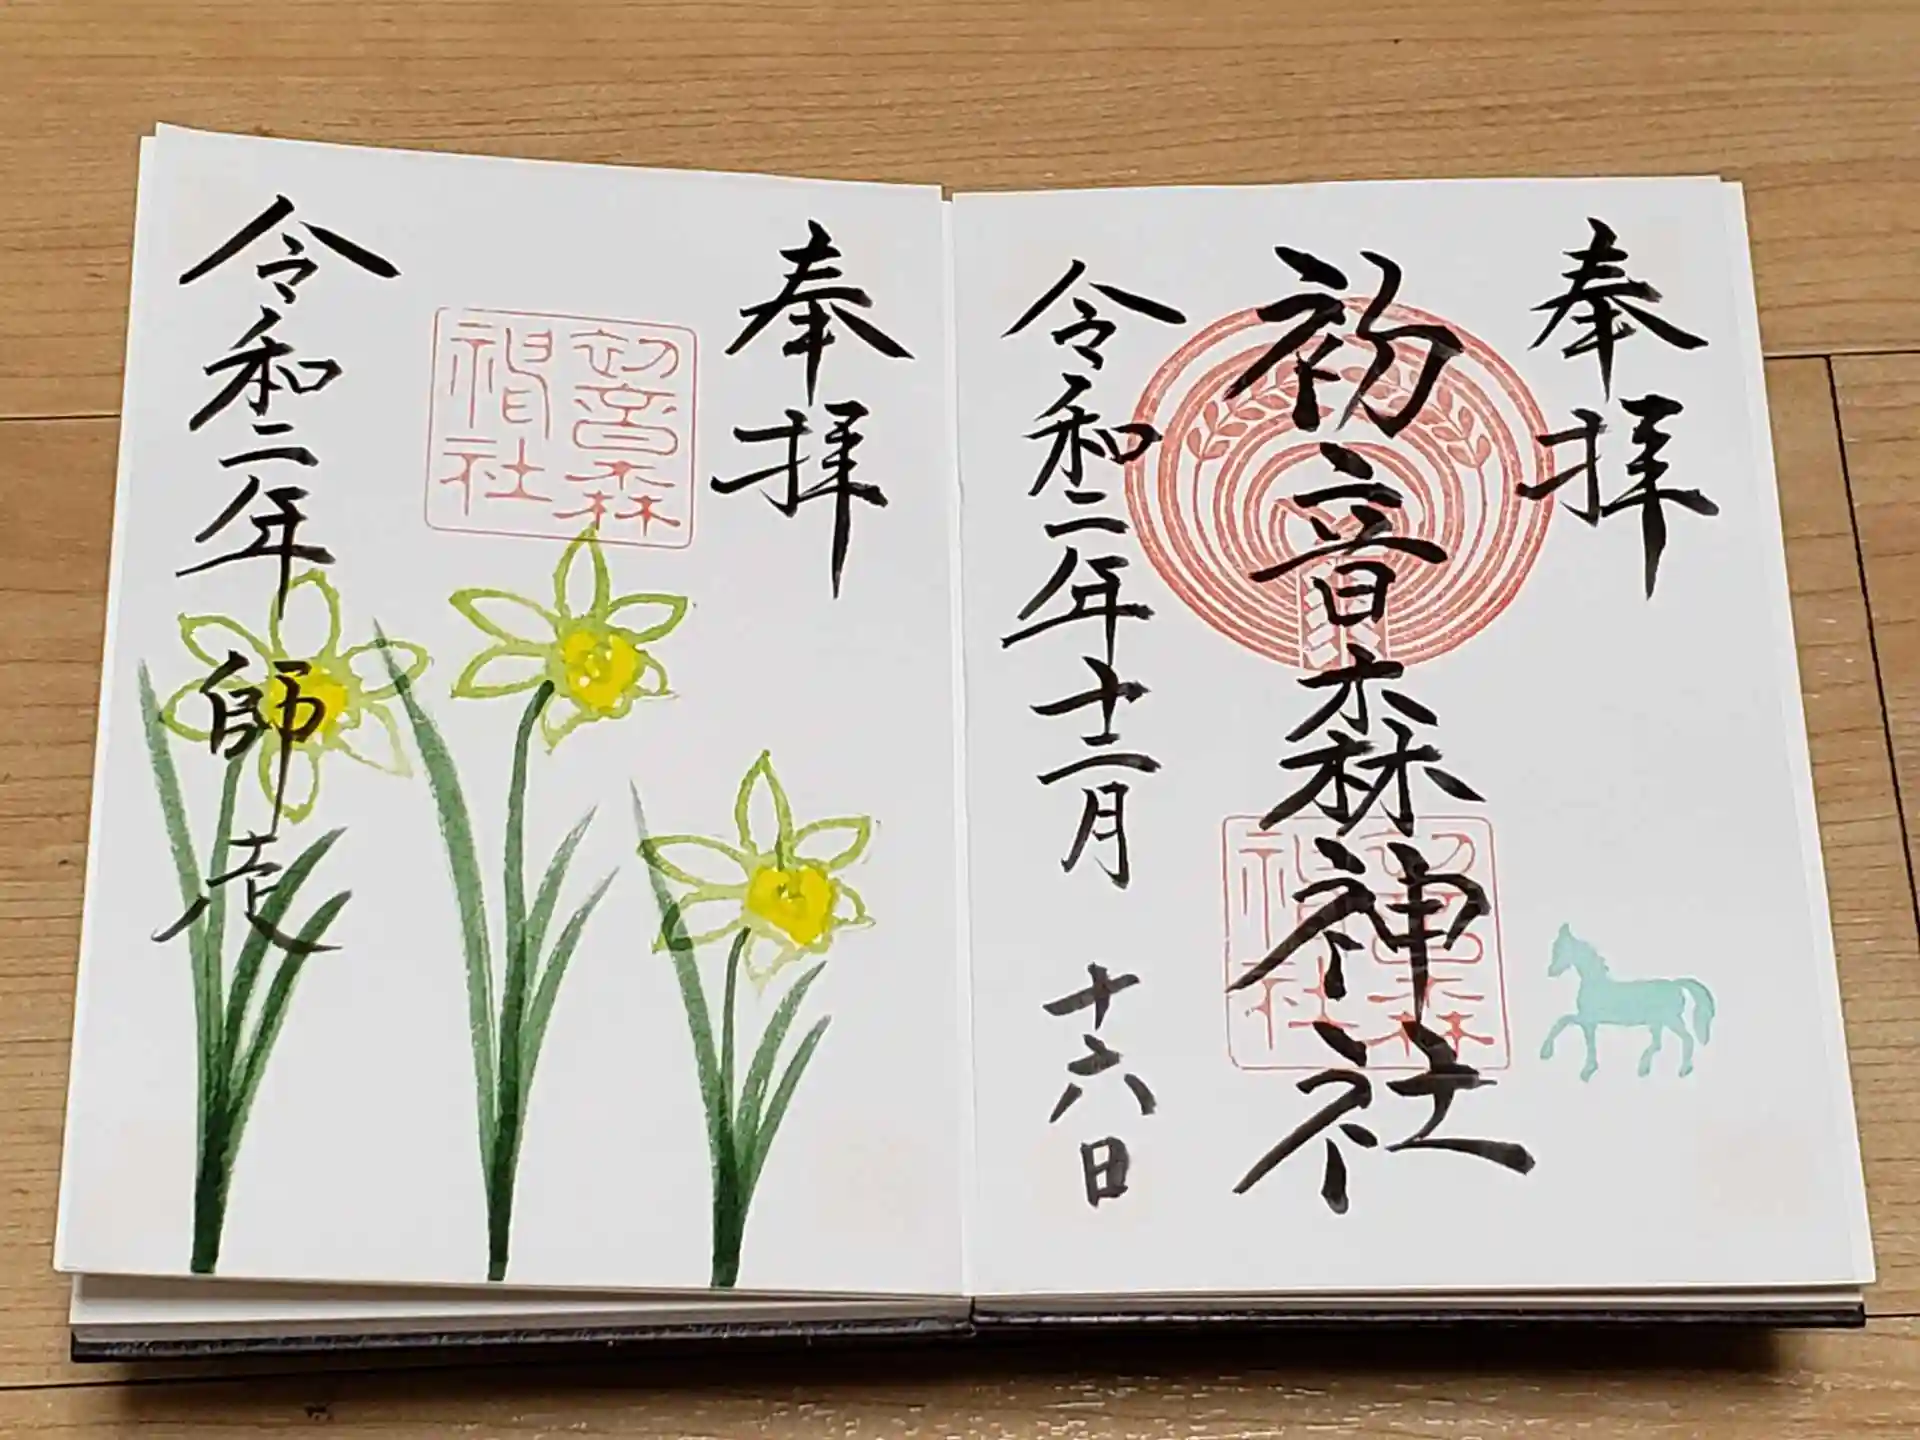 奉拝
初音森神社
初音森神社
令和二年十二月
十六日
奉拝
初音森神社
令和二年
師走